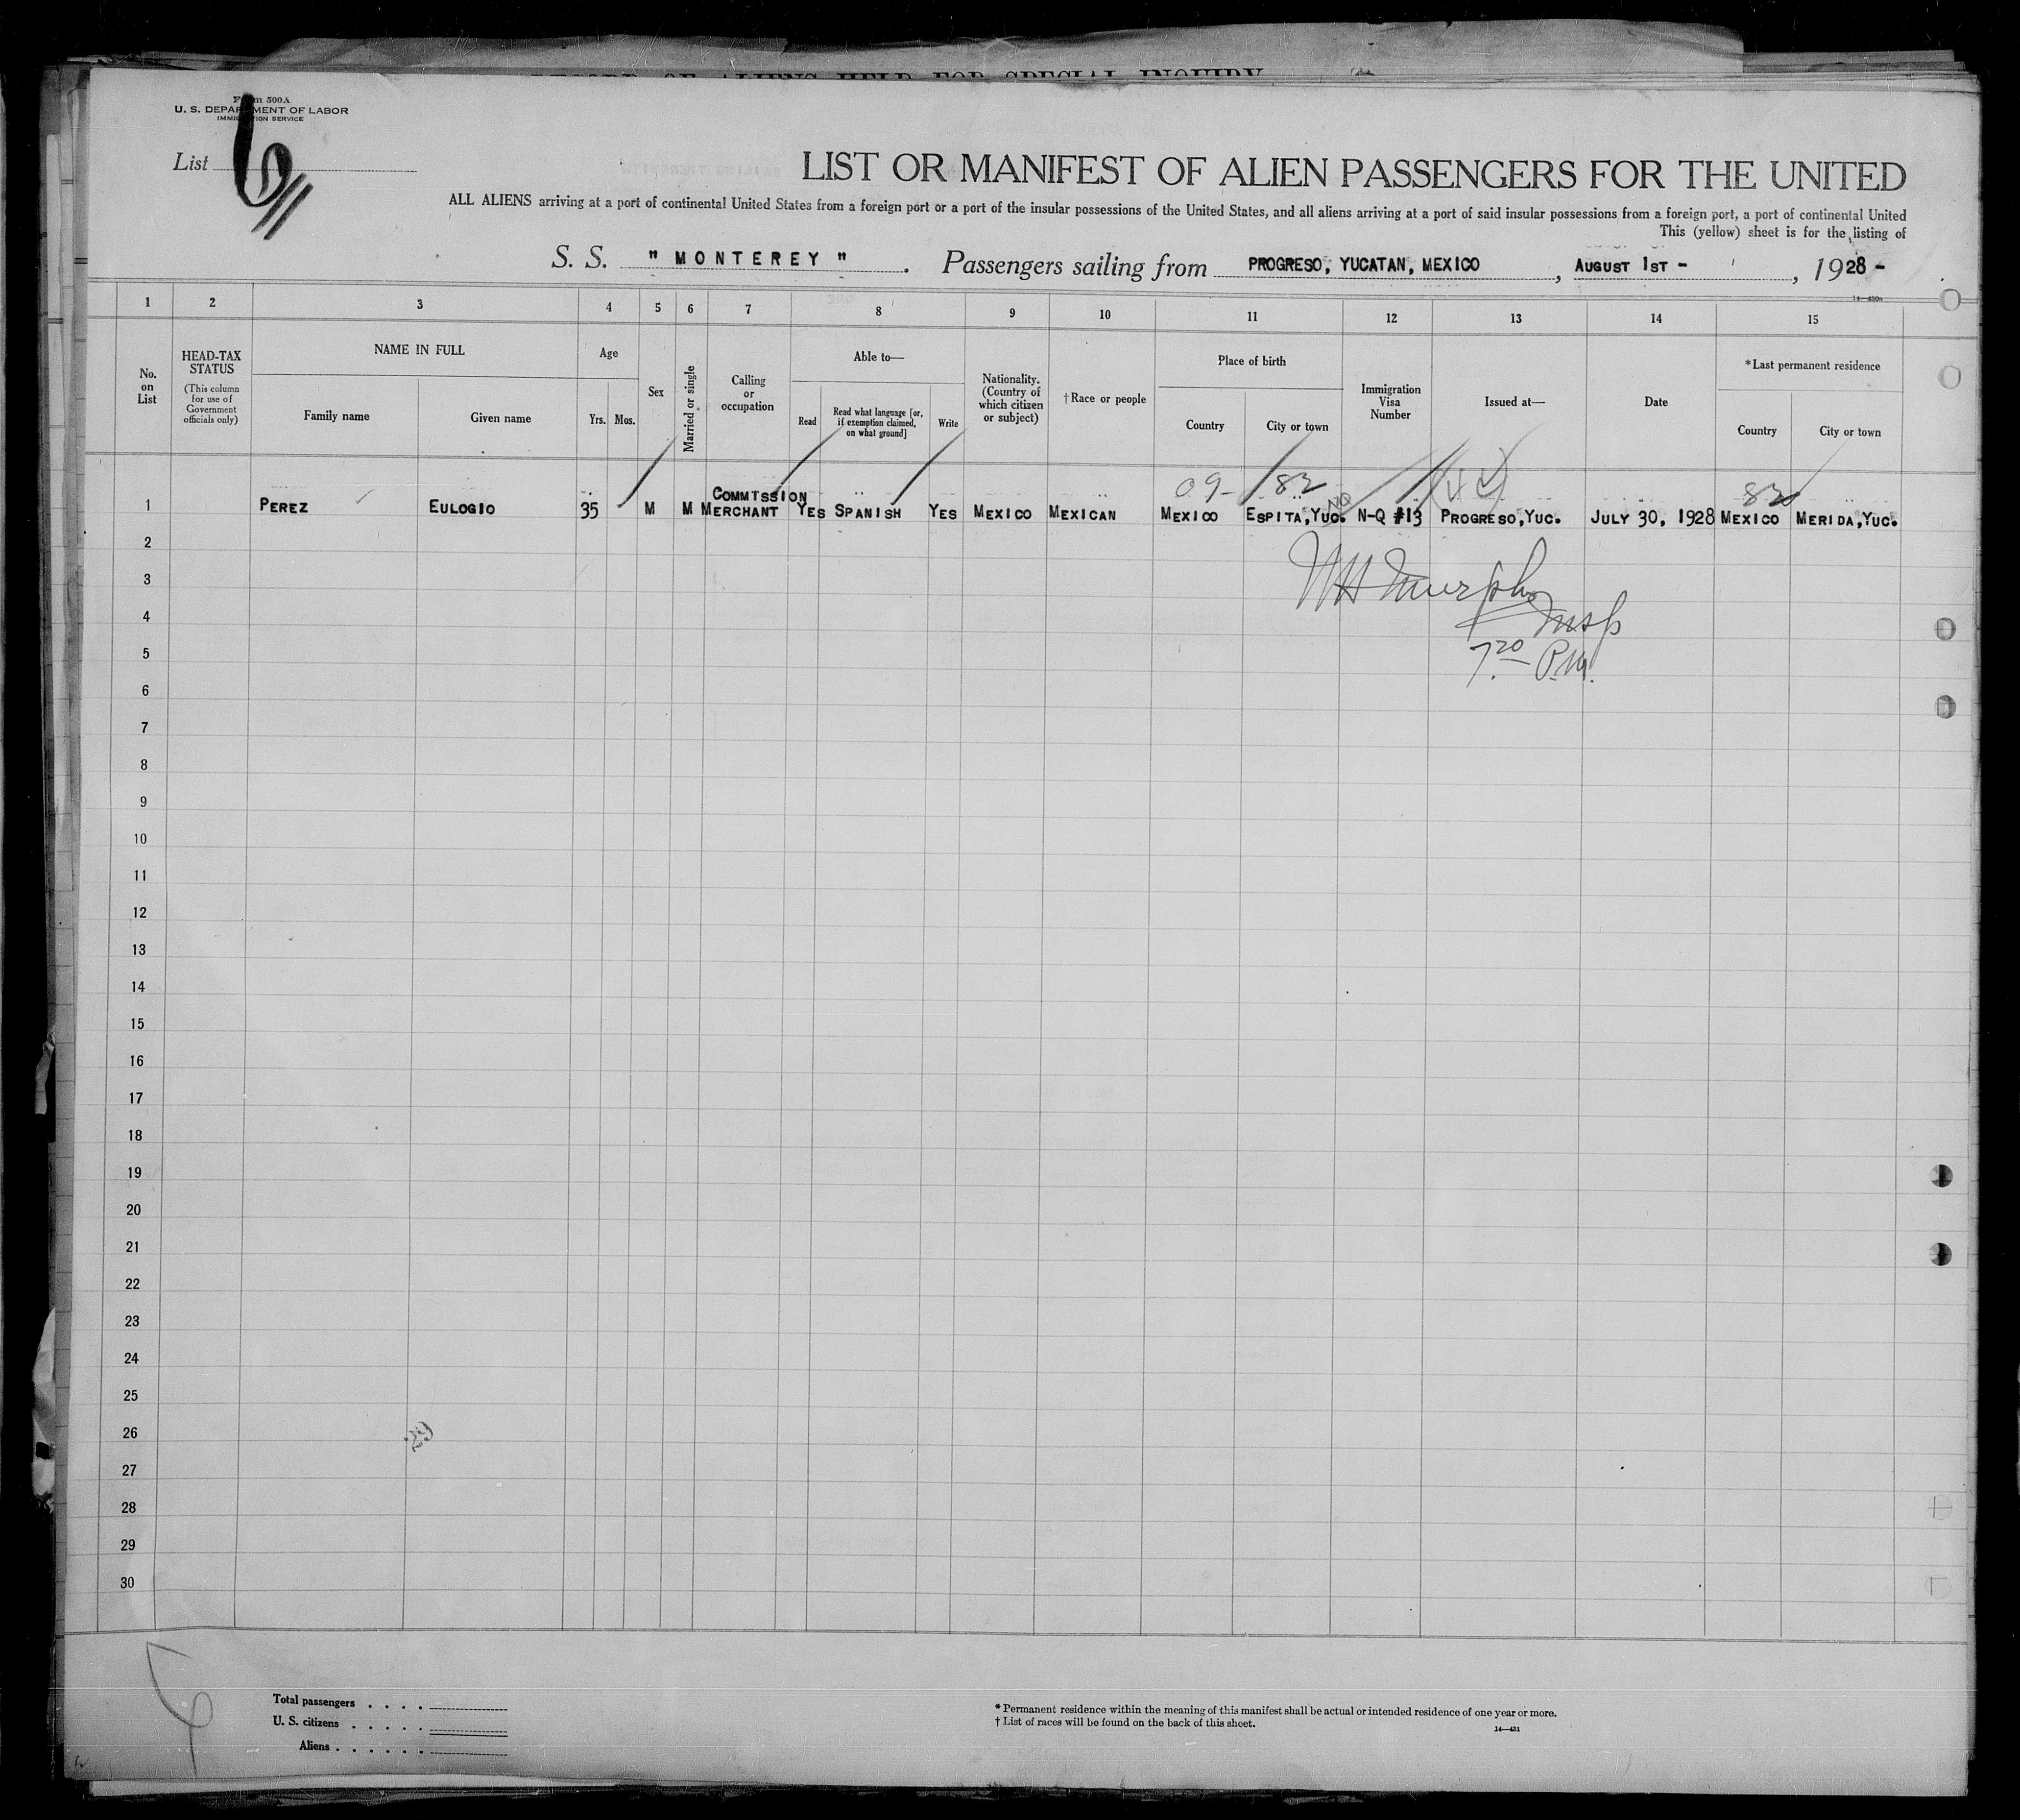 RECORD OF ALIENS HELD FOR SPECIAL INQUIRY
Form 500A
U. S. DEPARTMENT OF LABOR
IMMIGRATION SERVICE
List 6
LIST OR MANIFEST OF ALIEN PASSENGERS FOR THE UNITED
ALL ALIENS arriving at a port of continental United States from a foreign port or a port of the insular possessions of the United States, and all aliens arriving at a port of said insular possessions from a foreign port, a port of continental United
This (yellow) sheet is for the listing of
S. S. " MONTEREY " . Passengers sailing from PROGRESO, YUCATAN, MEXICO , AUGUST 1ST - , 1928 -
1 2 3 4 5 6 7 8 9 10 11 12 13 14 15
No. on List
HEAD-TAX STATUS (This column for use of Government officials only)
NAME IN FULL
Family name Given name
Age
Yrs. Mos.
Sex
Married or single
Calling or occupation
Able to—
Read
Read what language [or, if exemption claimed, on what ground]
Write
Nationality. (Country of which citizen or subject)
†Race or people
Place of birth
Country City or town
Immigration Visa Number
Issued at—
Date
*Last permanent residence
Country City or town
09- 82 82
1 PEREZ EULOGIO 35 M M COMMISSION MERCHANT YES SPANISH YES MEXICO MEXICAN MEXICO ESPITA,YUC. N-Q #13 PROGRESO,YUC. JULY 30, 1928 MEXICO MERIDA,YUC.
2
3 WH Murphy
4 Insp
5 7.20 P.M.
6
7
8
9
10
11
12
13
14
15
16
17
18
19
20
21
22
23
24
25
26
27
28
29
30
Total passengers . . . .
U. S. citizens . . . . .
Aliens . . . . . .
* Permanent residence within the meaning of this manifest shall be actual or intended residence of one year or more.
† List of races will be found on the back of this sheet.
14—431